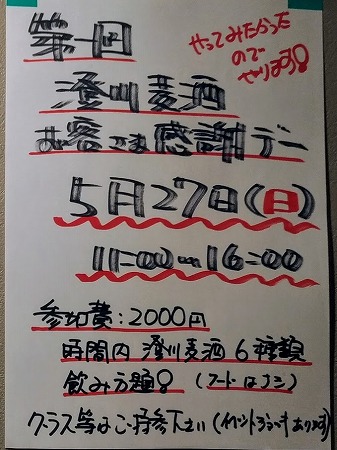 第一回
やってみたかった
ので
やります!
澄川麦酒
お客さま感謝デー
5月27日(日)
11:00~16:00
参加費:2000円
時間内 澄川麦酒6種類
飲み方題! (フードはナシ)
グラス等はご持参下さい (イベントグラスあります)